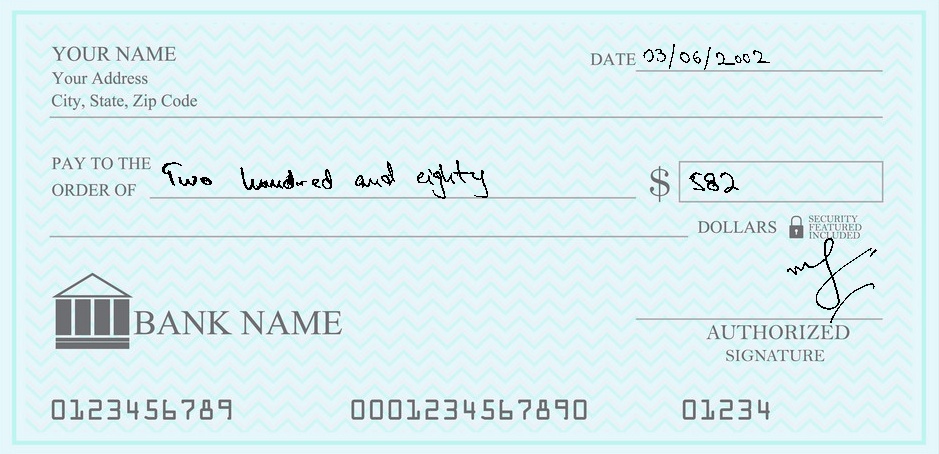 YOUR NAME
Your Address
City, State, Zip Code
DATE 03/06/2002
PAY TO THE
ORDER OF Two hundred and eighty $ 582
DOLLARS SECURITY
FEATURED
INCLUDED
BANK NAME
AUTHORIZED
SIGNATURE
0123456789 0001234567890 01234